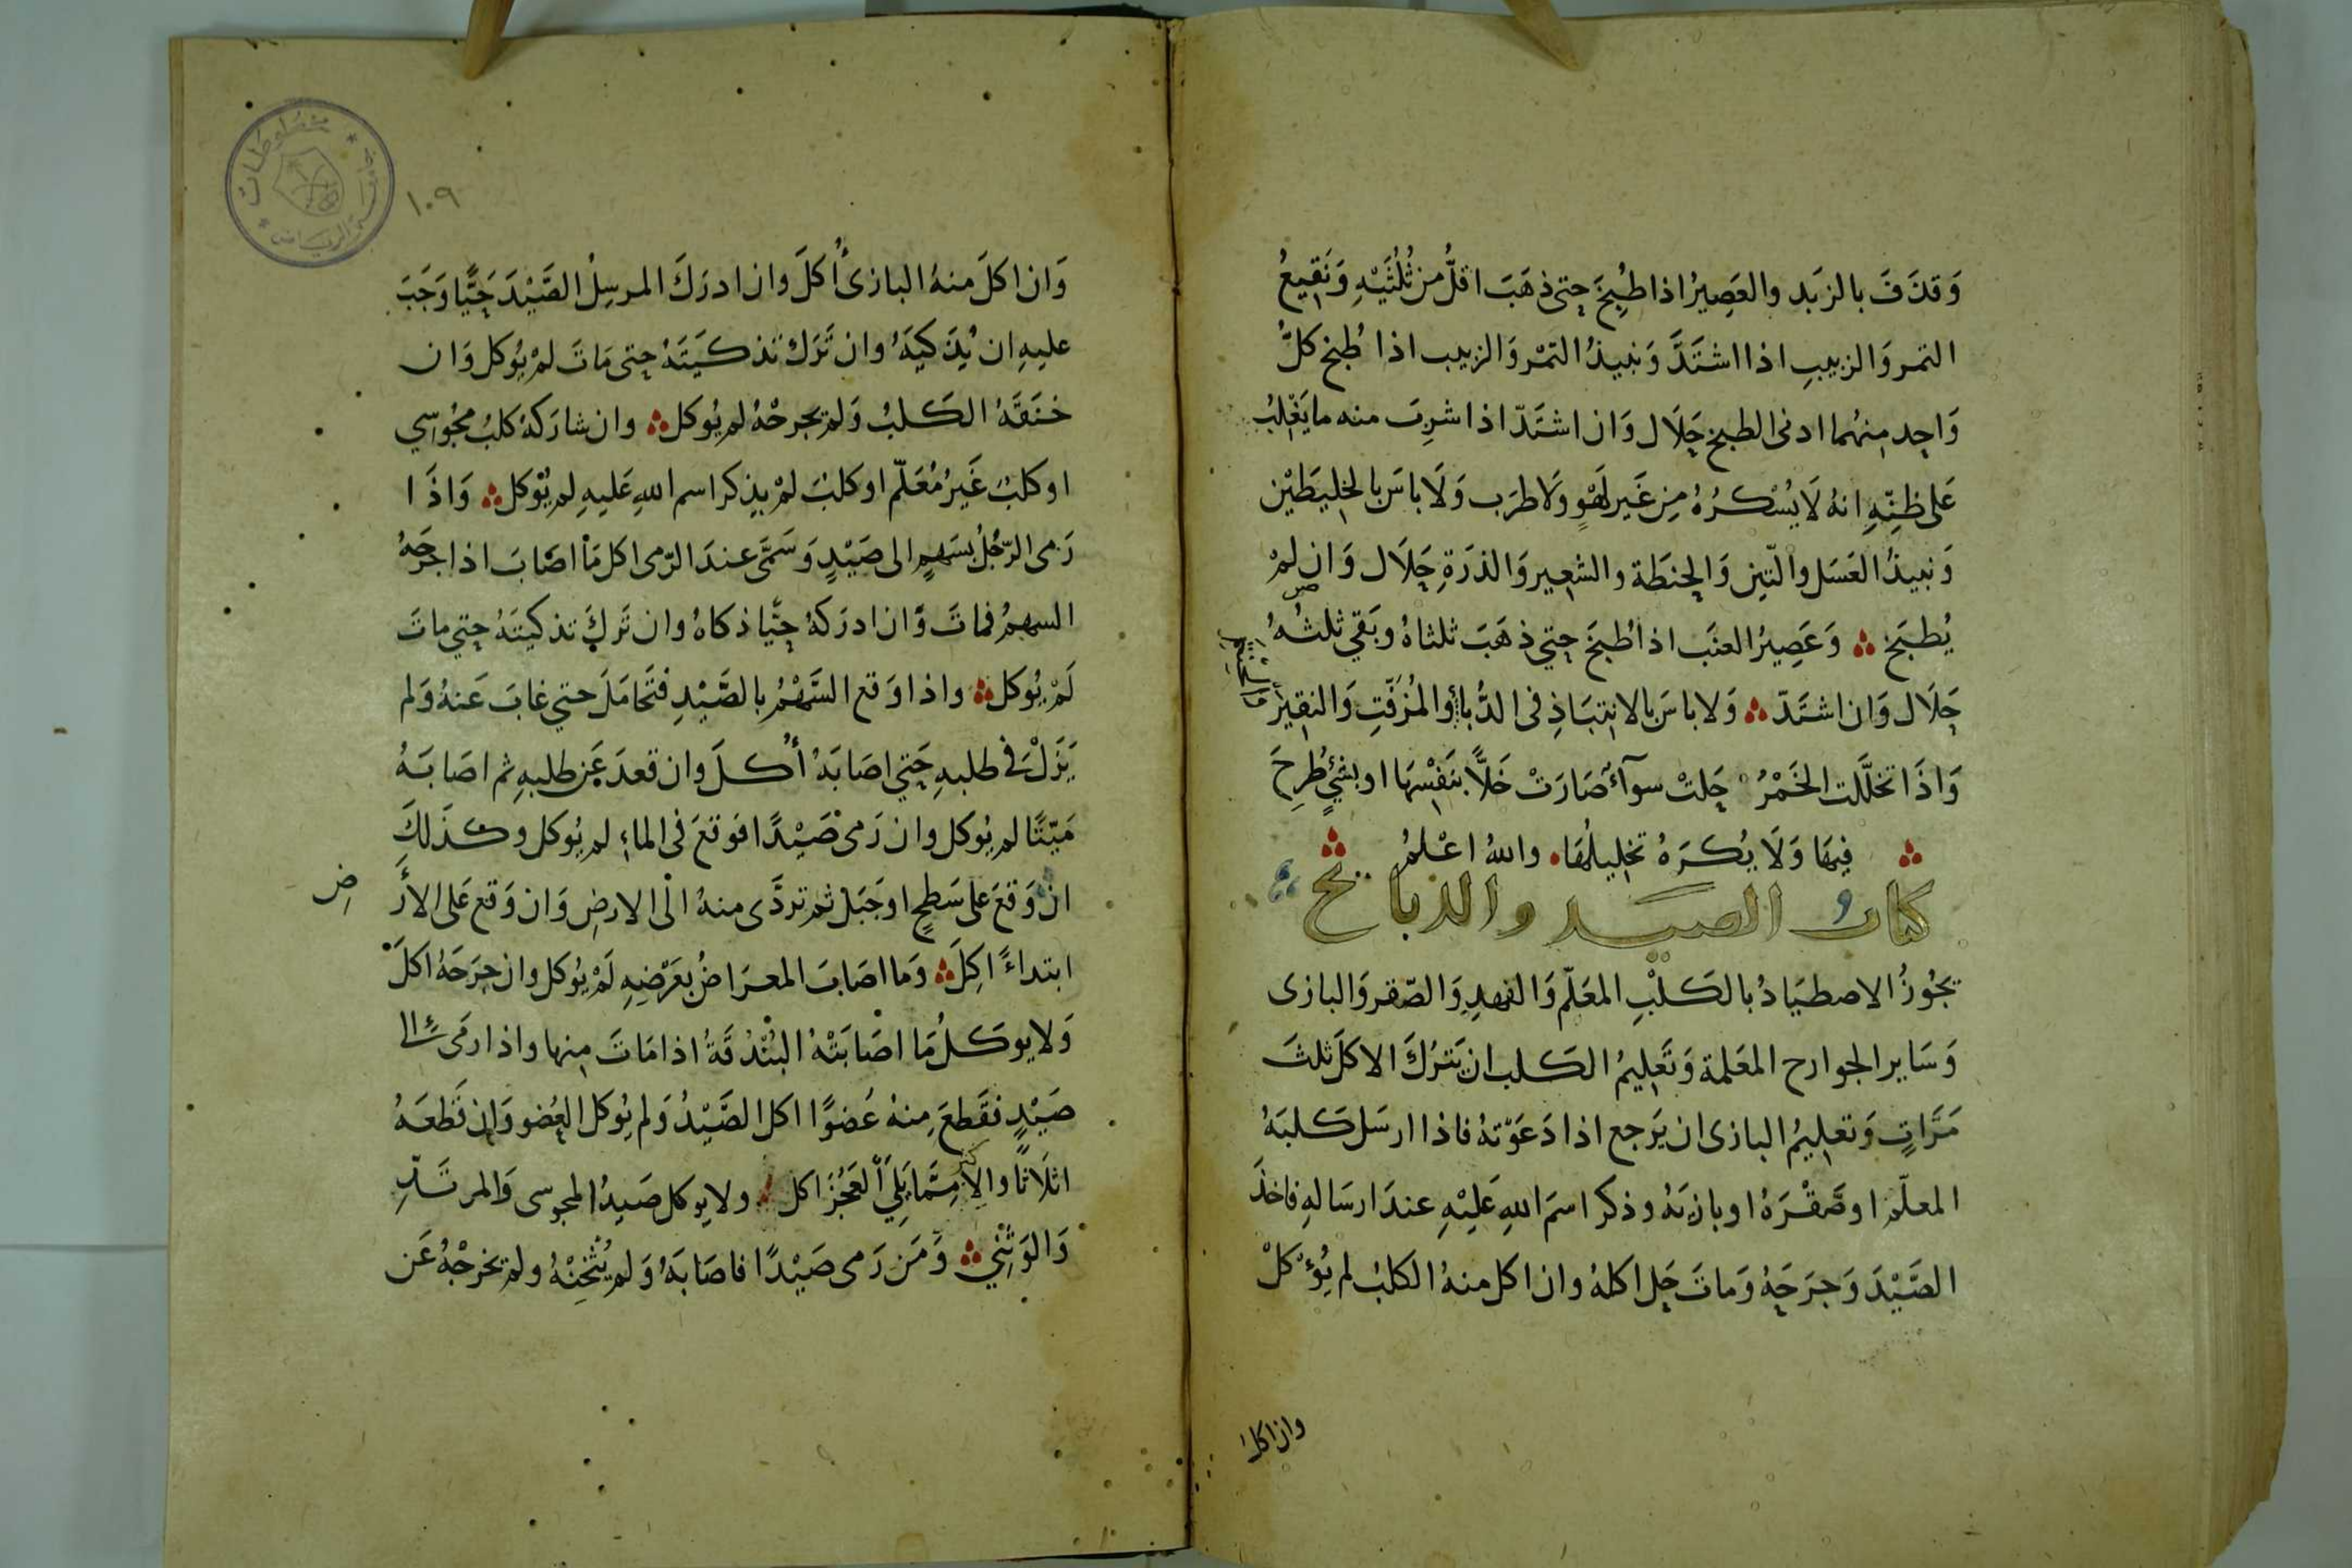 وَقذفَ بالزبَد والعَصِيرُ اذا طُبِخَ حتى ذهَبَ اقلُّ من ثُلُثَيْهِ وَنَقِيعُ
التمر وَالزبيبِ اذا اشتَدَّ وَنبيذُ التمْر وَالزبيب اذا طُبخ كلُّ
وَاحِد مِنهُما ادنى الطبخ حَلَال وَان اشتَدّ اذا شرِبَ منه ما يَغْلِبُ
عَلى ظنِّهِ انهُ لَا يُسْكرُهُ مِن غَير لَهْوٍ وَلا طرَب وَلَا باسَ بالخلِيطَيْن
وَنبيذُ العَسَل والتّين وَالحِنطَة والشعِير وَالذرَةِ حَلَال وَان لمْ
يُطبَخ وَعَصِيرُ العنَب اذا طُبخَ حتي ذهَبَ ثلثاهُ وبَقي ثلثهُ
حَلَال وَان اشتَدّ وَلا باسَ بالانتِبَاذِ فى الدُّباءِ والمُزَفّتِ وَالنقِيْر
وَالحنتم
وَاذَا تخلَّلت الخَمْرُ حَلتْ سوآءٌ صَارَتْ خَلًّا بنَفْسِهَا او بشيٍ طُرِحَ
فِيهَا وَلَا يُكرَهُ تخلِيلُهَا واللهُ اعْلمُ
كتابُ الصيد والذبائح
يجُوزُ الاصطيَادُ بالكلْبِ المعَلّم وَالفهدِ وَالصّقر وَالبازى
وَسَاير الجوارح المعَلمة وَتَعلِيمُ الكلب ان يَترُكَ الاكلَ ثلثَ
مَرَّاتٍ وَتعلِيمُ البازى ان يَرجع اذا دَعَوْتهُ فاذا ارسَل كلبَهُ
المعلّم او صَقْرَهُ او بازيَهُ وذكر اسمَ اللهِ عَليْهِ عندَ ارسَالهِ فاخذَ
الصَّيْدَ وَجرَحَهُ وَماتَ حَل اكلهُ وان اكل منهُ الكلبُ لم يُؤكلْ
وان اكل
١٠٩
وَان اكلَ منهُ البازىُ أُكلَ وان ادرَكَ المرسِلُ الصَّيْدَ حَيًّا وَجَبَ
عليهِ ان يُذَكيَهُ وان تَرَكَ تذكيَتَهُ حتى مَاتَ لمْ يُوكل وَان
خنَقَهُ الكلبُ وَلم يجرحْهُ لم يُوكل وان شارَكهُ كلبُ مجُوسِي
او كلبُ غَيرُ مُعَلّم او كلبُ لمْ يذكر اسم اللهِ عَليهِ لم يُوكل وَاذَا
رَمى الرّجُلُ بسَهمٍ الى صَيْدٍ وَسَمَّى عندَ الرّمى اكل مَا اصَابَ اذا جرَحَهُ
السهمُ فماتَ وَان ادرَكهُ حَيًّا ذكاهُ وان تَركَ تذكيتَهُ حتي ماتَ
لَمْ يُوكَل واذا وَقع السَّهْمُ بالصَّيْدِ فتَحَامَلَ حتي غابَ عَنهُ وَلم
يَزَلْ في طلبهِ حَتي اصَابَهُ أُكلَ وان قعدَ عَن طلبهِ ثم اصَابَهُ
مَيّتًا لم يُوكل وان رَمى صَيْدًا فوَقعَ فى الماءِ لم يُوكل وكذَلكَ
ان وَقعَ عَلى سَطحٍ او جَبَل ثم تردَّى منهُ الى الارضِ وَان وَقع عَلى الأر
ضِ
ابتداءً اكِلَ وَما اصَابَ المعرَاضُ بعَرْضِهِ لَمْ يُوكل وان جرَحَهُ اكلَ
وَلا يوكلُ مَا اصَابَتْهُ البُنْدُقَةُ اذا مَاتَ مِنها واذا رمَى الى
صَيْدٍ فقَطعَ مِنهُ عُضوًا اكل الصَّيْدُ وَلم يُوكل العُضو وَان قَطعَهُ
اثلَاثًا والاكثر مِمَّا يَلي العَجُزَ اكل ولا يوكل صَيدُ المجوسى وَالمرتَدِّ
وَالوَثنِي وَمَن رَمى صَيْدًا فاصَابَهُ وَلم يُثْخِنْهُ ولم يخرجْهُ عَن